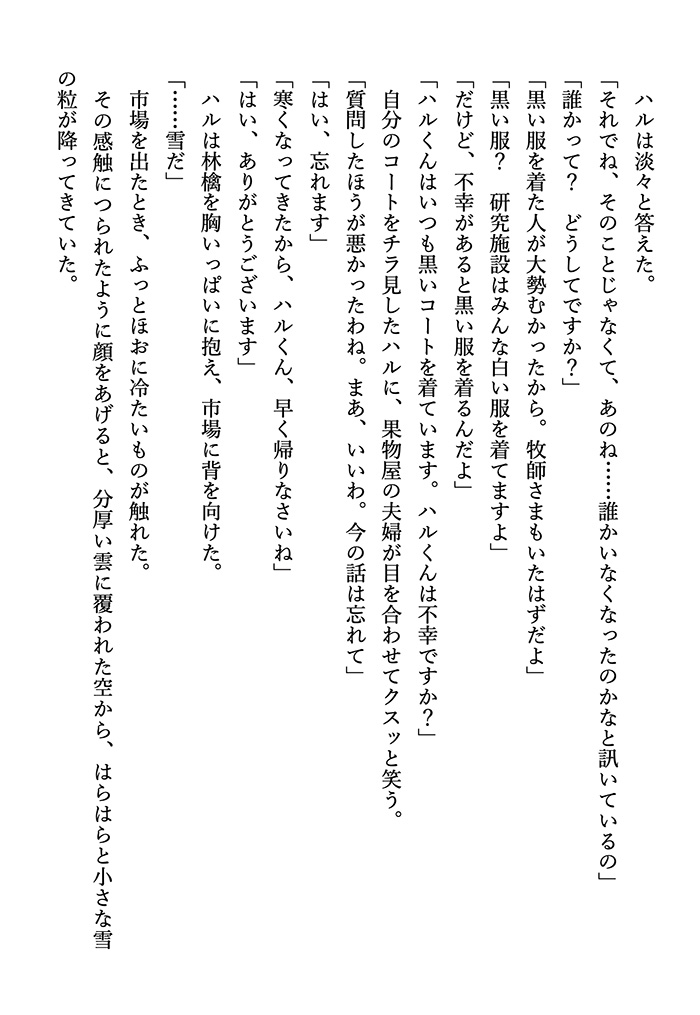 ハルは淡々と答えた。
「それでね、そのことじゃなくて、あのね……誰かいなくなったのかなと訊いているの」
「誰かって？　どうしてですか？」
「黒い服を着た人が大勢むかったから。牧師さまもいたはずだよ」
「黒い服？　研究施設はみんな白い服を着てますよ」
「だけど、不幸があると黒い服を着るんだよ」
「ハルくんはいつも黒いコートを着ています。ハルくんは不幸ですか？」
自分のコートをチラ見したハルに、果物屋の夫婦が目を合わせてクスッと笑う。
「質問したほうが悪かったわね。まあ、いいわ。今の話は忘れて」
「はい、忘れます」
「寒くなってきたから、ハルくん、早く帰りなさいね」
「はい、ありがとうございます」
ハルは林檎を胸いっぱいに抱え、市場に背を向けた。
「……雪だ」
市場を出たとき、ふっとほおに冷たいものが触れた。
その感触につられたように顔をあげると、分厚い雲に覆われた空から、はらはらと小さな雪
の粒が降ってきていた。